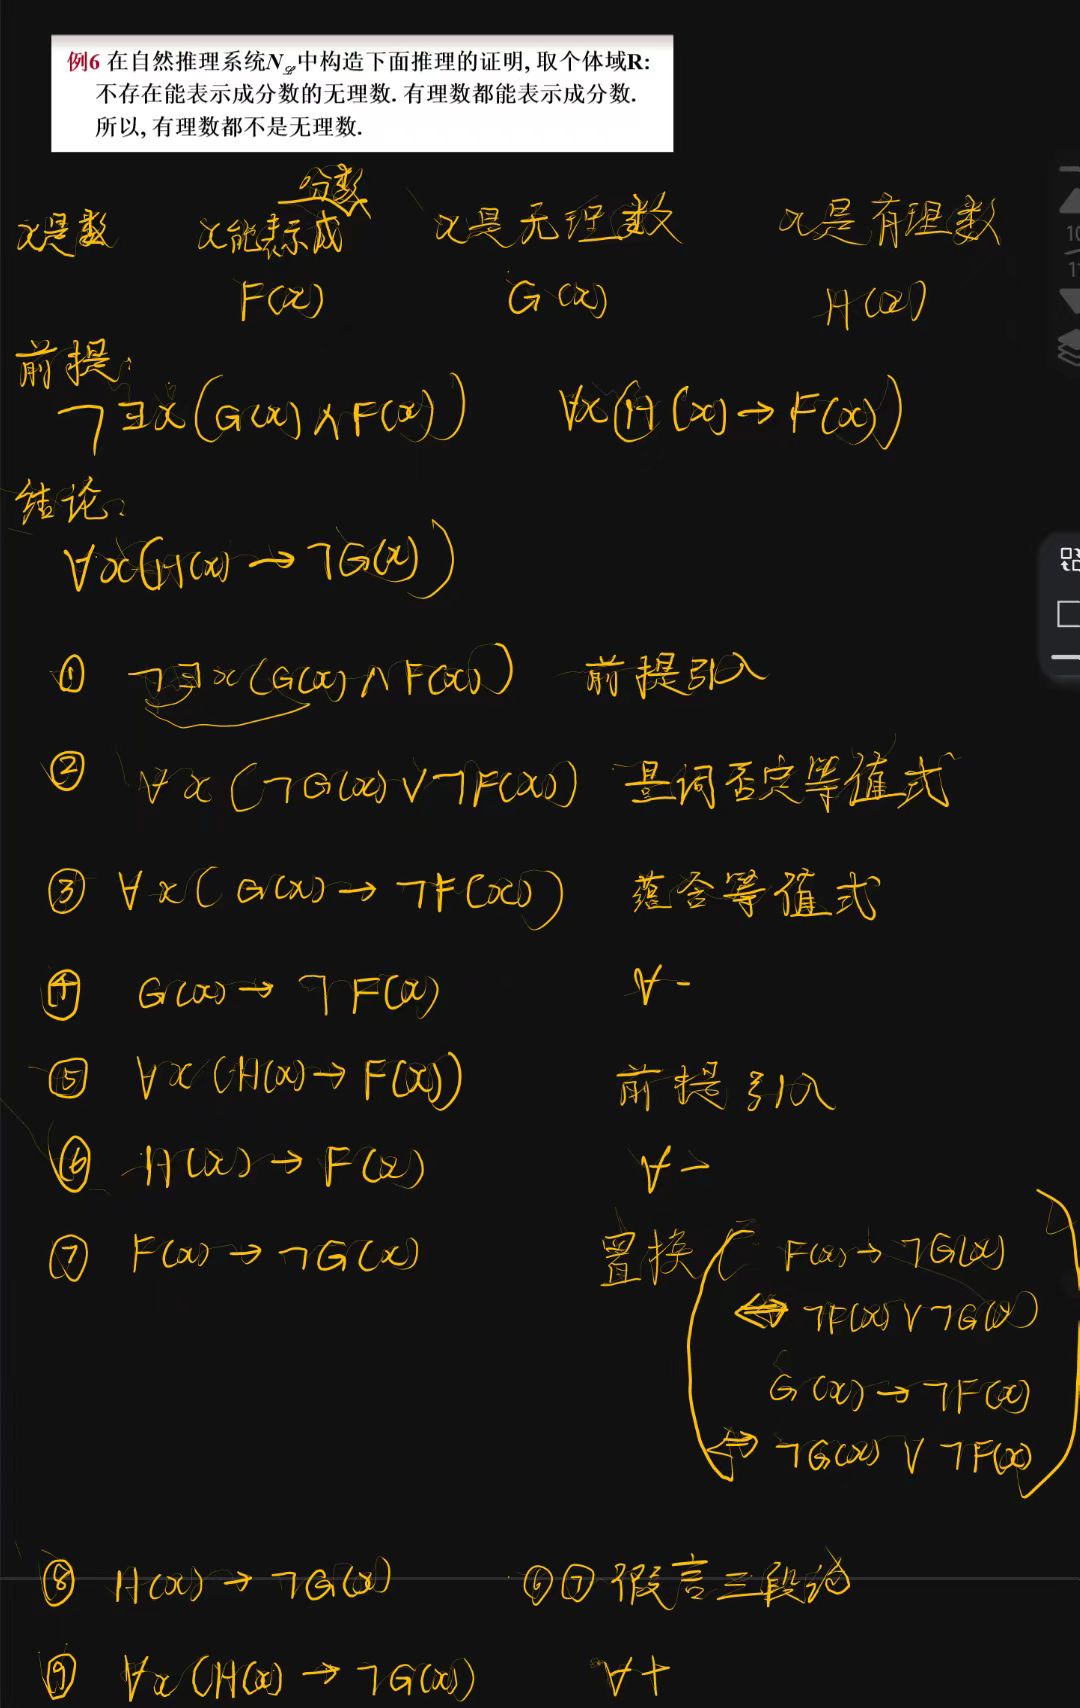 例6 在自然推理系统N𝓛中构造下面推理的证明, 取个体域R:
不存在能表示成分数的无理数. 有理数都能表示成分数.
所以, 有理数都不是无理数.
分数
x是数 x能表示成 x是无理数 x是有理数
F(x) G(x) H(x)
前提:
¬∃x(G(x)∧F(x)) ∀x(H(x)→F(x))
结论:
∀x(H(x)→¬G(x))
① ¬∃x(G(x)∧F(x)) 前提引入
② ∀x(¬G(x)∨¬F(x)) 量词否定等值式
③ ∀x(G(x)→¬F(x)) 蕴含等值式
④ G(x)→¬F(x) ∀-
⑤ ∀x(H(x)→F(x)) 前提引入
⑥ H(x)→F(x) ∀-
⑦ F(x)→¬G(x) 置换 F(x)→¬G(x)
⇔¬F(x)∨¬G(x)
G(x)→¬F(x)
⇔¬G(x)∨¬F(x)
⑧ H(x)→¬G(x) ⑥⑦假言三段论
⑨ ∀x(H(x)→¬G(x)) ∀+